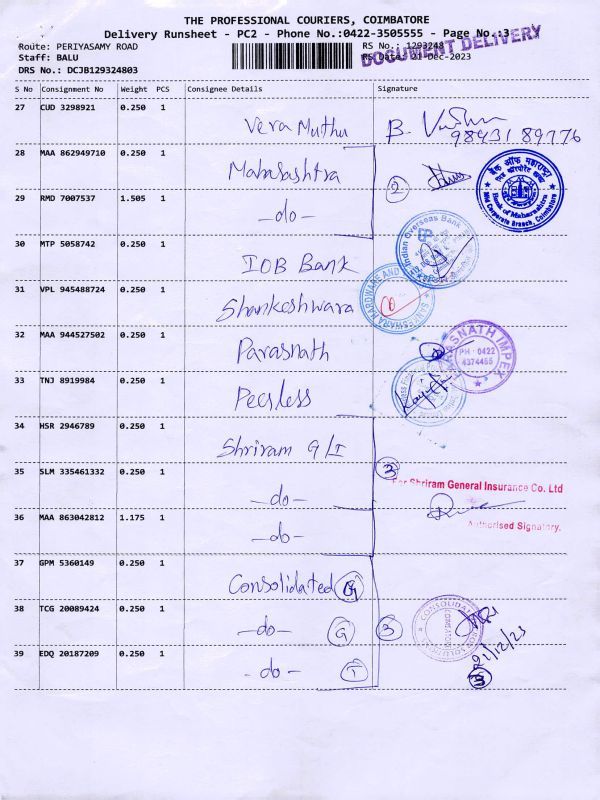 THE PROFESSIONAL COURIERS, COIMBATORE
Delivery Runsheet - PC2 - Phone No.:0422-3505555 - Page No.:3
DOCUMENT DELIVERY
Route: PERIYASAMY ROAD RS No.: 1293248
Staff: BALU RS Date: 21-Dec-2023
DRS No.: DCJB129324803
S No Consignment No Weight PCS Consignee Details Signature
27 CUD 3298921 0.250 1 Vera Muthu B.
98431 89776
28 MAA 862949710 0.250 1 Maharashtra
2
बैंक ऑफ महाराष्ट्र
Bank of Maharashtra
Mid Corporate Branch, Coimbatore
29 RMD 7007537 1.505 1 -do-
30 MTP 5058742 0.250 1 IOB Bank
Indian Overseas Bank
31 VPL 945488724 0.250 1 Shankeshwara
HARDWARE AND
32 MAA 944527502 0.250 1 Parasnath
PARASNATH IMPEX
PH : 0422
4374455
33 TNJ 8919984 0.250 1 Peerless
34 HSR 2946789 0.250 1 Shriram G/I
3
For Shriram General Insurance Co. Ltd
35 SLM 335461332 0.250 1 -do-
36 MAA 863042812 1.175 1 -do-
Authorised Signatory.
37 GPM 5360149 0.250 1 Consolidated G
38 TCG 20089424 0.250 1 -do- G 3
39 EDQ 20187209 0.250 1 -do- I
21/12/23
3